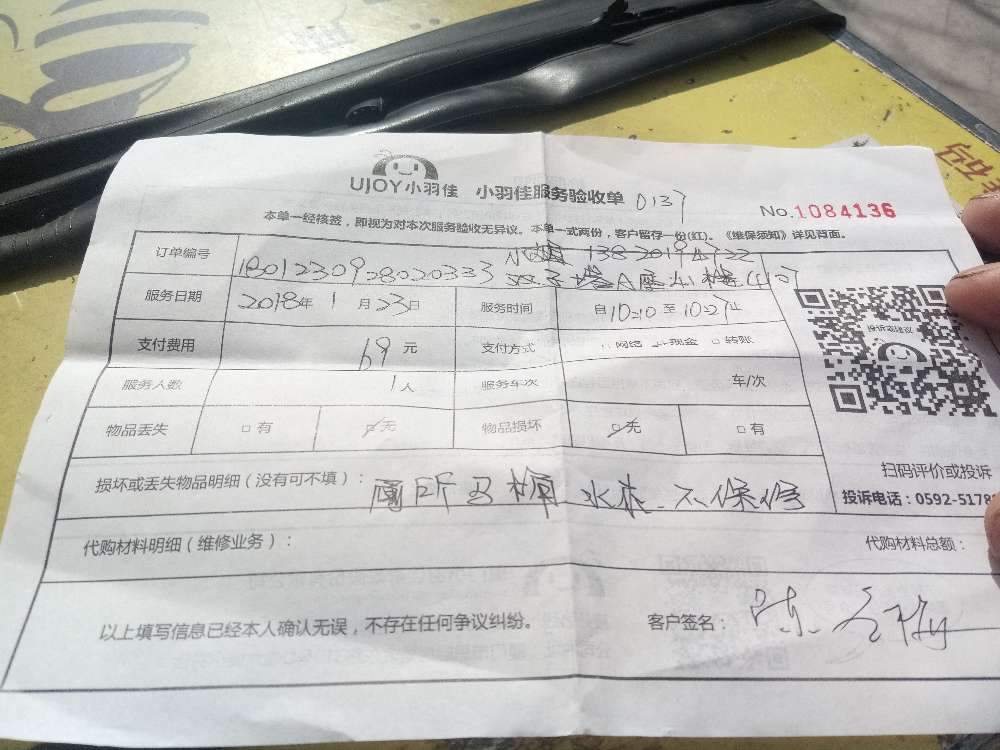 UJOY小羽佳 小羽佳服务验收单 0137
No.1084136
本单一经核签，即视为对本次服务验收无异议。本单一式两份，客户留存一份(红)。《维保须知》详见背面。
订单编号 1801230928020333
服务日期 2018年1月23日 服务时间 自10:10至10:27止
支付费用 69元 支付方式 网络 现金 转账
服务人数 1人 服务车次 车/次
物品丢失 有 无 物品损坏 无 有
投诉或建议
扫码评价或投诉
投诉电话：0592-5178
损坏或丢失物品明细（没有可不填）： 水 不保修
代购材料明细（维修业务）： 代购材料总额：
以上填写信息已经本人确认无误，不存在任何争议纠纷。 客户签名： 陈